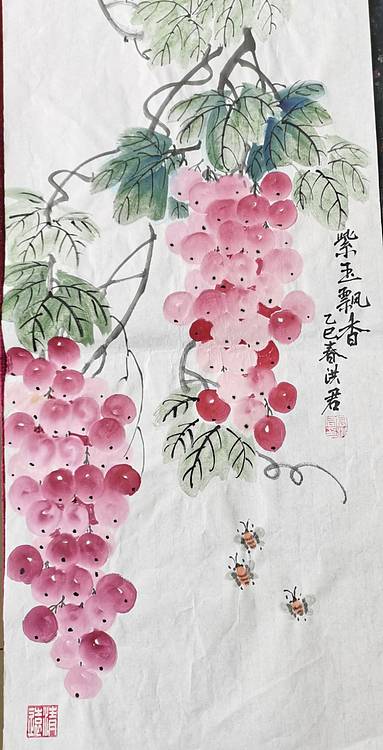 紫玉飘香
乙巳春洪君
清遠